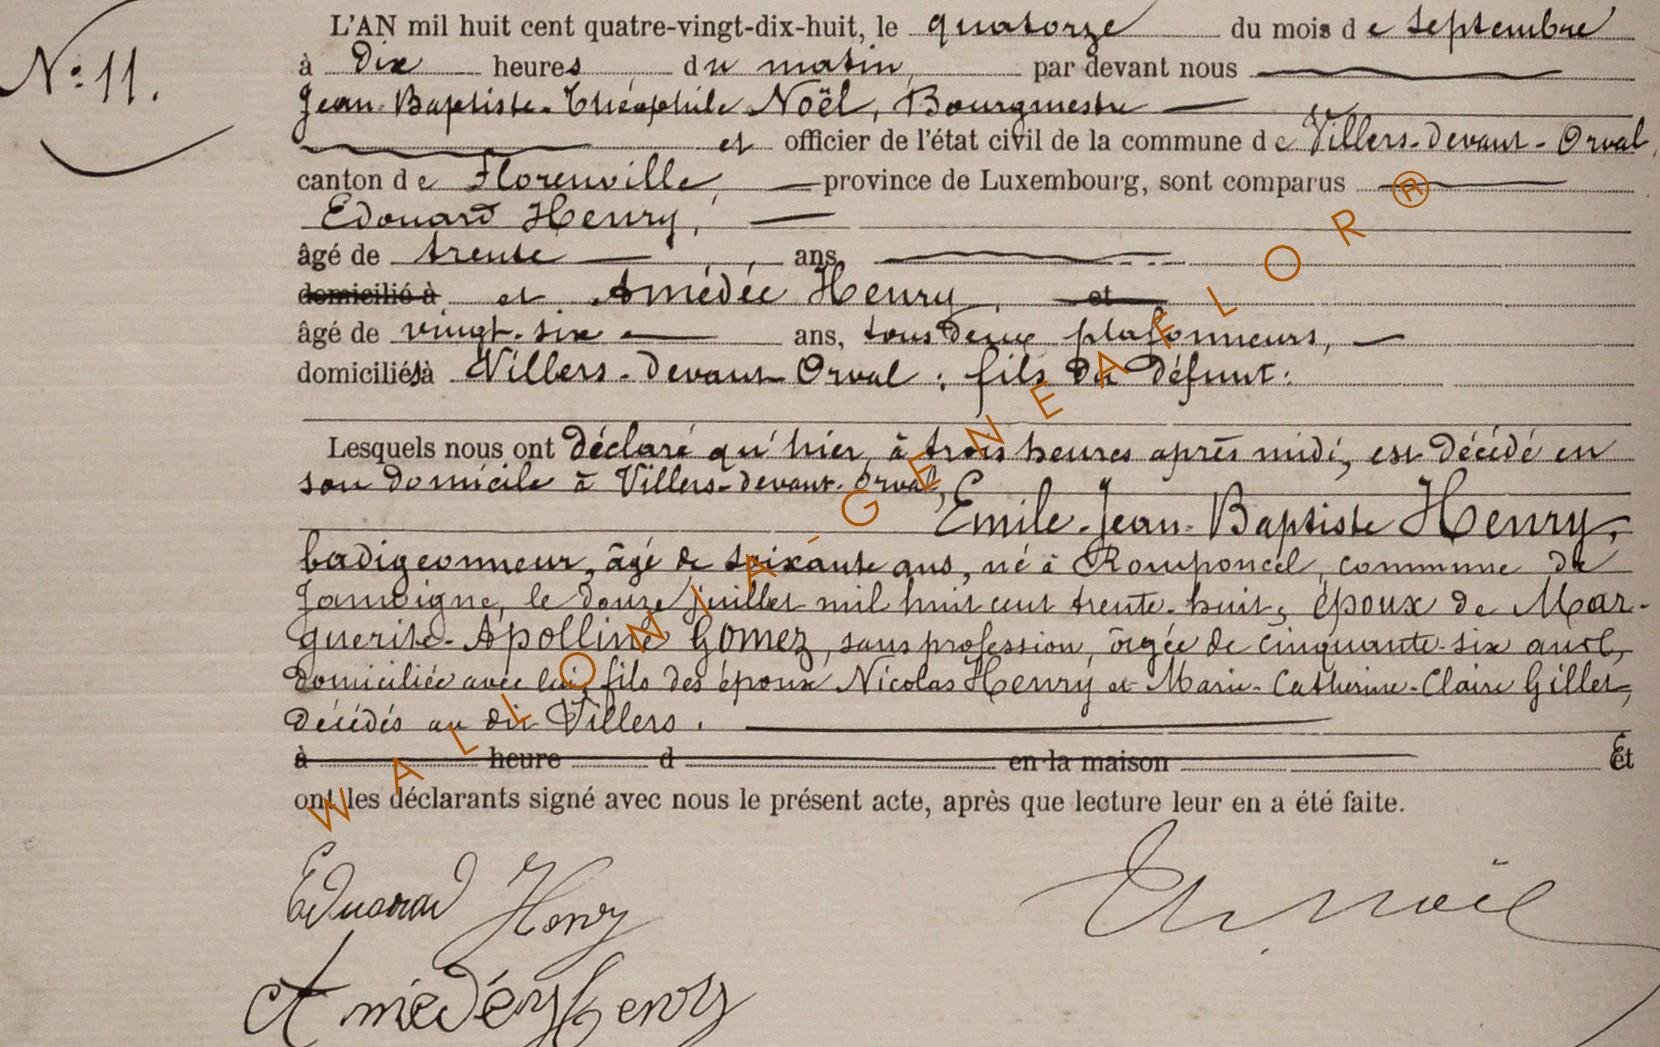 N° 11.
L'AN mil huit cent quatre-vingt-dix-huit, le quatorze du mois de septembre
à dix heures du matin, par devant nous
Jean-Baptiste-Théophile Noël, Bourgmestre
et officier de l'état civil de la commune de Villers-devant-Orval,
canton de Florenville, province de Luxembourg, sont comparus
Edouard Henry,
âgé de trente ans,
domicilié à et Amédée Henry, et
âgé de vingt-six ans, tous deux plafonneurs,
domiciliés à Villers-devant-Orval ; fils du défunt :
Lesquels nous ont déclaré qu'hier, à trois heures après midi, est décédé en
son domicile à Villers-devant-Orval,
Emile-Jean-Baptiste Henry,
badigeonneur, âgé de soixante ans, né à Romponcel, commune de
Jamoigne, le douze juillet mil huit cent trente-huit, époux de Mar-
guerite-Apolline Gomez, sans profession, âgée de cinquante-six ans,
domiciliée avec lui, fils des époux Nicolas Henry et Marie-Catherine-Claire Gillet,
décédés au dit Villers.
à heure d en la maison Et
ont les déclarants signé avec nous le présent acte, après que lecture leur en a été faite.
Eduoard Henry
Th. Noël
Amedéy henry
WALLONIA - GENEAFLOR ®